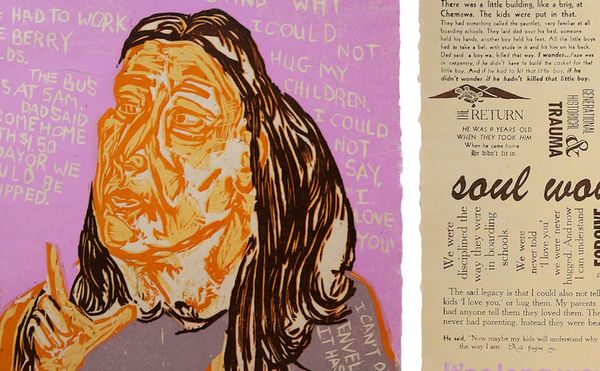 HAD TO WORK
BERRY
DS.
THE BUS
S AT 5AM.
DAD SAID
COME HOME
TH $1.50
DAY OR WE
ULD BE
PPED.
AND WHY
I COULD
NOT
HUG MY
CHILDREN.
I COULD
NOT
SAY,
"I
LOVE
YOU"
I CAN'T
IT HAS
There was a little building, like a brig, at
Chemawa. The kids were put in that.
They had something called the gauntlet, very common, from what I've read, in
boarding schools.
had to take a belt with studs in it and hit him on his back.
Dad said a boy was killed that way. I wonder...
in carpentry, if he didn't have to build the casket for that
little boy. And if he had to hit that little boy, if he
didn't wonder if he hadn't killed that little boy.
THE RETURN
HE WAS 9 YEARS OLD
WHEN THEY TOOK HIM
When he came home
He didn't fit in.
GENERATIONAL
HISTORICAL
& TRAUMA
soul wou
We were
disciplined the
way they were
in boarding
schools.
We were
never told
'I love you'
we were never
hugged. And now
I can understand
The sad legacy is that I could also not tell
kids 'I love you,' or hug them. My parents
had anyone tell them they loved them. The
never had parenting. Instead they were bea
He said, "Now maybe my kids will understand why
the way I am And forgive